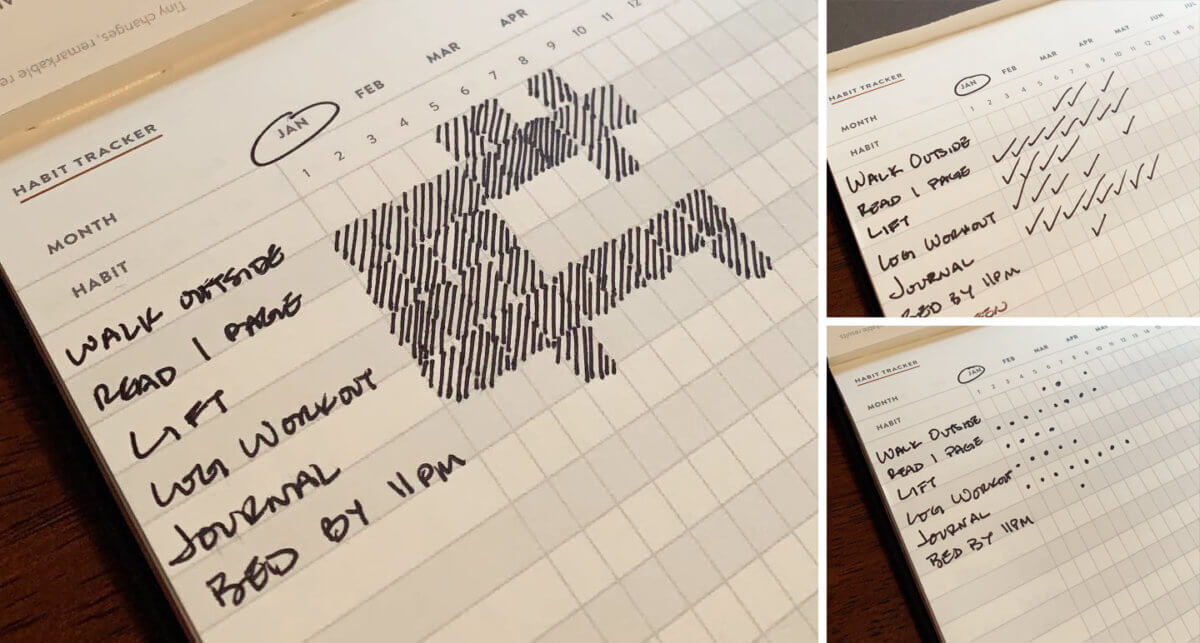 Tiny changes, remarkable re
HABIT TRACKER
MONTH JAN FEB MAR APR
HABIT 1 2 3 4 5 6 7 8 9 10 11 12
WALK OUTSIDE
READ 1 PAGE
LIFT
LOG WORKOUT
JOURNAL
BED BY 11PM
HABIT TRACKER
MONTH JAN FEB MAR APR MAY JUN JUL
HABIT 1 2 3 4 5 6 7 8 9 10 11 12 13 14 15
WALK OUTSIDE
READ 1 PAGE
LIFT
LOG WORKOUT
JOURNAL
BED BY 11PM
results
HABIT TRACKER
MONTH JAN FEB MAR APR MAY
HABIT 1 2 3 4 5 6 7 8 9 10 11 12 13 14 15
WALK OUTSIDE
READ 1 PAGE
LIFT
LOG WORKOUT
JOURNAL
BED BY 11PM